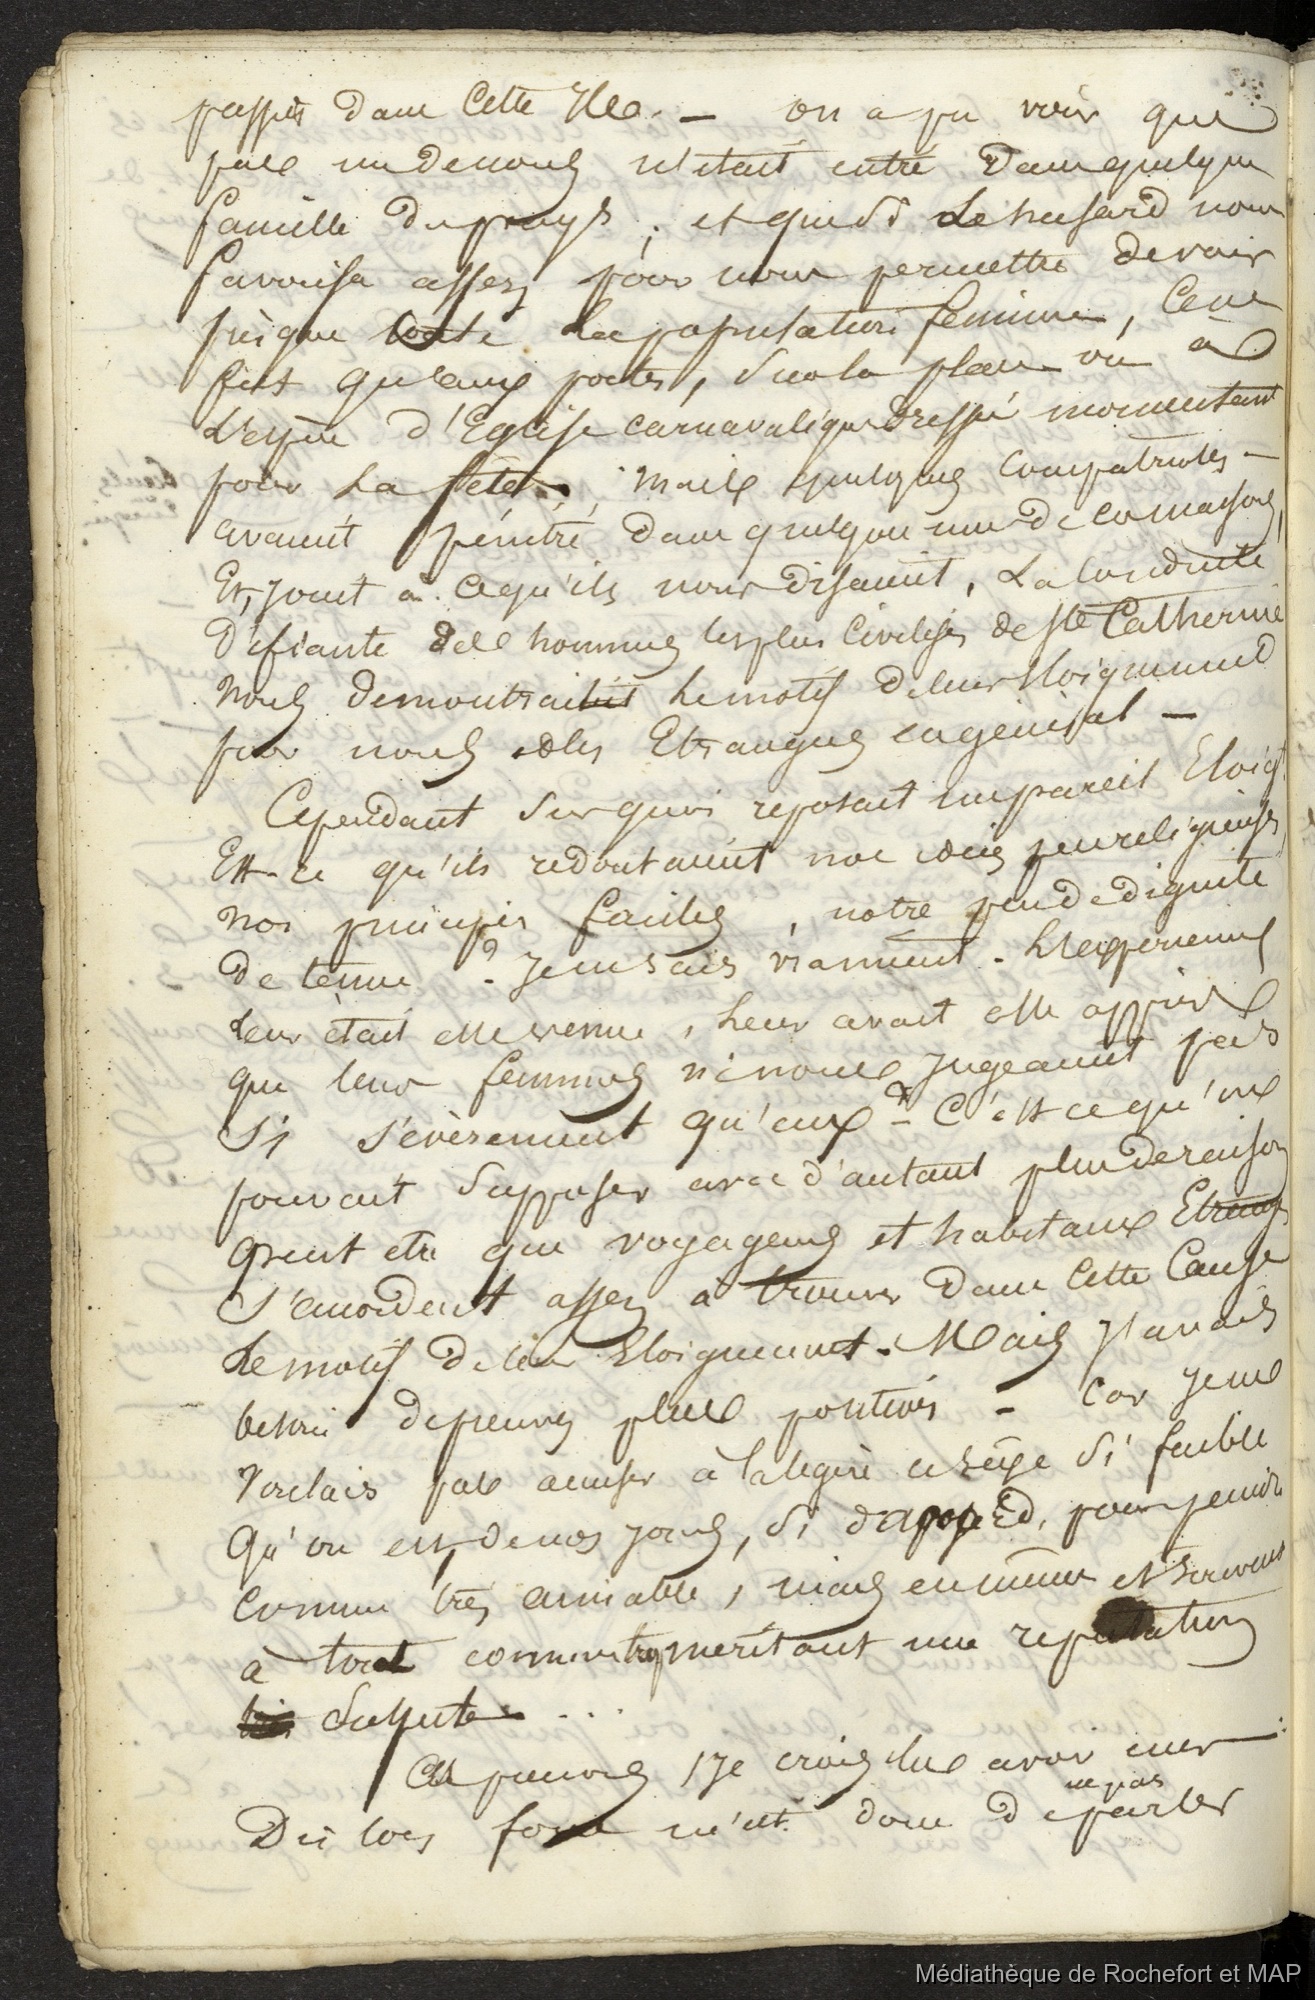 passés dans cette Ile. — on a pu voir que
pas un de nous n'etait entré Dans quelque
famille du pays ; et que si le hasard nous
favorisa assez pour nous permettre de voir
presque toute la population feminine, ce ne
fut qu'aux portes, sur la place ou à
L'espèce d'Eglise carnavalique dressé momentant
pour La fête. Mais quelques compatriotes —
avaient pénétré dans quelques unes de ces maisons,
Et, joint à ce qu'ils nous disaient, La conduite
Défiante des hommes les plus civilisés de Ste Catherine
Nous demontrait le motif de leur Eloignement
pour nous et les Etrangers en géneral —
Cependant sur quoi reposait un pareil Eloigt
Est-ce qu'ils redoutaient nos idées peu religieuses,
nos principes faciles, notre peu de dignité
de tenue ? Je ne sais vraiment. L'experience
leur était elle venue, leur avait elle appris
que leurs femmes ne nous jugeaient pas
si sévèrement qu'eux ? — C'est ce qu'on
pouvait supposer avec d'autant plus de raison
peut etre que voyageurs et habitans Etrangs
s'accordent assez à trouver dans cette Cause
Le motif de leur Eloignement. Mais j'avais
besoin de preuves plus positives — Car je ne
Voulais pas accuser à la legère ce sexe si faible
Qu'on est, de nos jours, si d'apppèd, pour peindre
comme très aimable, mais en même et
à tout comme trop meritant une reputation
suspecte ...
Ces preuves, je crois les avoir
Dès lors force m'est donc de ne pas parler
Médiathèque de Rochefort et MAP